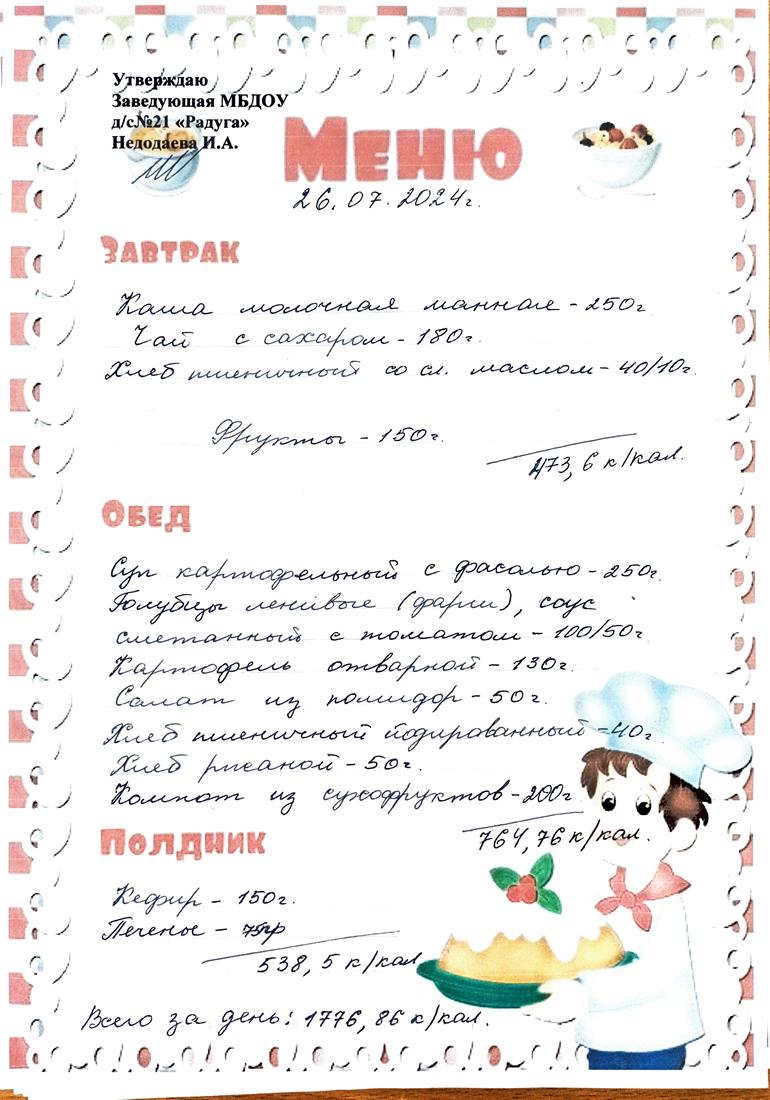 Утверждаю
Заведующая МБДОУ
д/с№21 «Радуга»
Недодаева И.А.
Меню
26.07.2024г.
Завтрак
Каша молочная манная - 250г
Чай с сахаром - 180г.
Хлеб пшеничный со сл. маслом - 40/10г.
Фрукты - 150г.
473,6 к/кал.
Обед
Суп картофельный с фасолью - 250г.
Голубцы ленивые (фарш), соус
сметанный с томатом - 100/50г.
Картофель отварной - 130г.
Салат из помидор - 50г.
Хлеб пшеничный йодированный - 40г.
Хлеб ржаной - 50г.
Компот из сухофруктов - 200г
764,76 к/кал.
Полдник
Кефир - 150г.
Печенье -
538,5 к/кал
Всего за день: 1776,86 к/кал.